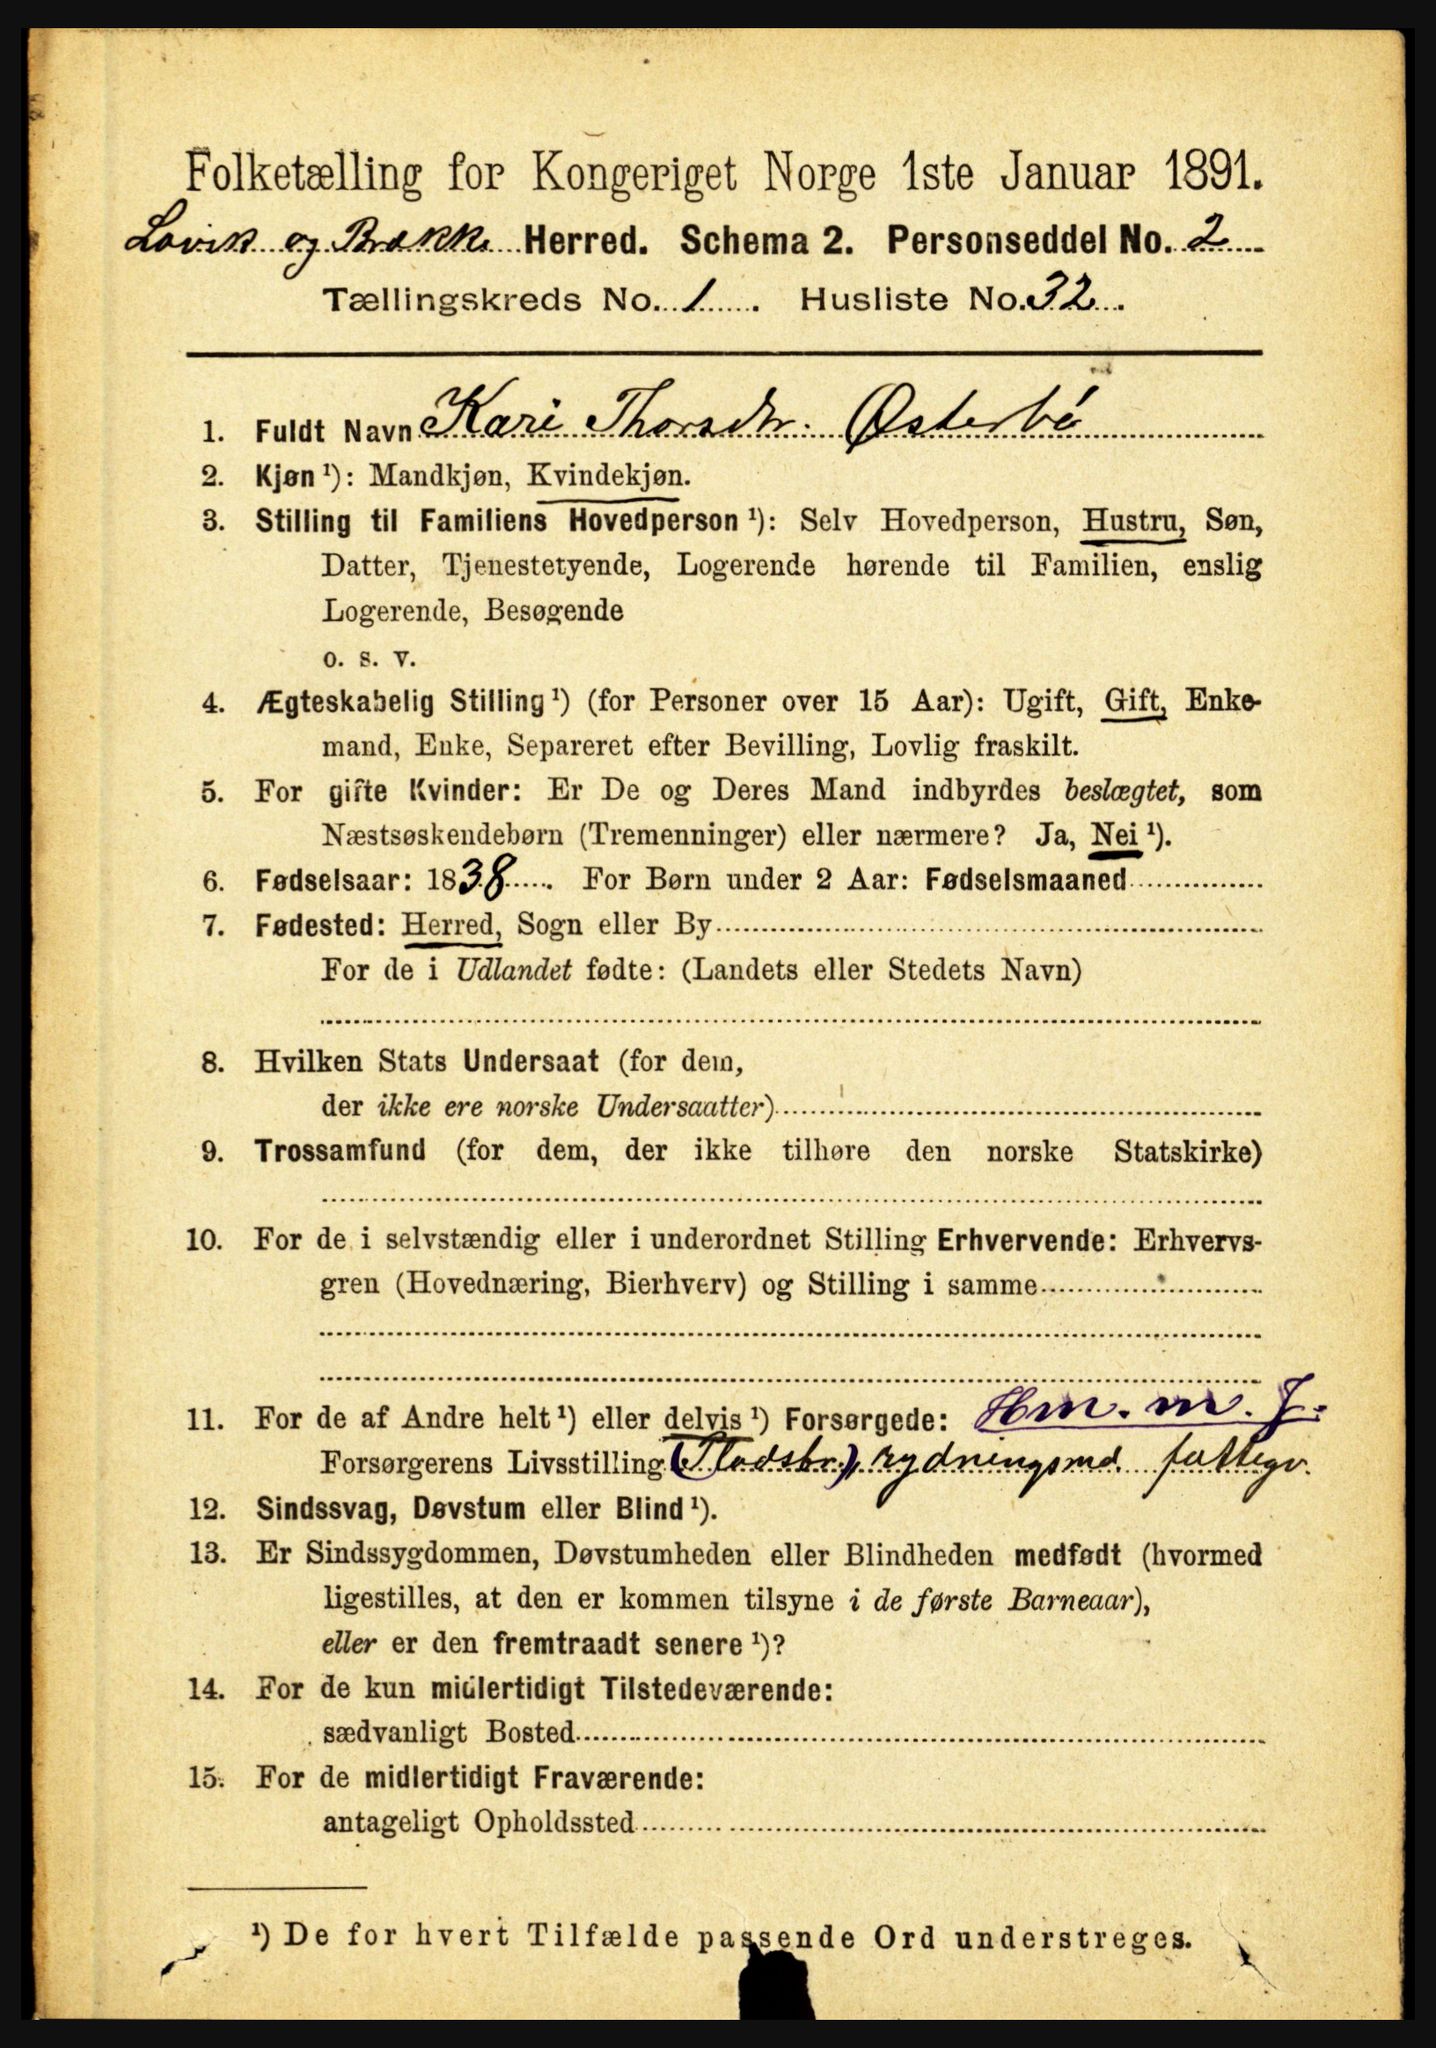 Folketælling for Kongeriget Norge 1ste Januar 1891.
Lavik og Brække Herred. Schema 2. Personseddel No. 2
Tællingskreds No. 1. Husliste No. 32.
1. Fuldt Navn Kari Thorsdtr. Østerbø
2. Kjøn ¹): Mandkjøn, Kvindekjøn.
3. Stilling til Familiens Hovedperson ¹): Selv Hovedperson, Hustru, Søn,
Datter, Tjenestetyende, Logerende hørende til Familien, enslig
Logerende, Besøgende
o. s. v.
4. Ægteskabelig Stilling ¹) (for Personer over 15 Aar): Ugift, Gift, Enke-
mand, Enke, Separeret efter Bevilling, Lovlig fraskilt.
5. For gifte Kvinder: Er De og Deres Mand indbyrdes beslægtet, som
Næstsøskendebørn (Tremenninger) eller nærmere? Ja, Nei ¹).
6. Fødselsaar: 1838. For Børn under 2 Aar: Fødselsmaaned
7. Fødested: Herred, Sogn eller By
For de i Udlandet fødte: (Landets eller Stedets Navn)
8. Hvilken Stats Undersaat (for dem,
der ikke ere norske Undersaatter)
9. Trossamfund (for dem, der ikke tilhøre den norske Statskirke)
10. For de i selvstændig eller i underordnet Stilling Erhvervende: Erhvervs-
gren (Hovednæring, Bierhverv) og Stilling i samme
11. For de af Andre helt ¹) eller delvis ¹) Forsørgede: Hm. m. J.
Forsørgerens Livsstilling (Pladsbr.), rydningsmd. fattigv.
12. Sindssvag, Døvstum eller Blind ¹).
13. Er Sindssygdommen, Døvstumheden eller Blindheden medfødt (hvormed
ligestilles, at den er kommen tilsyne i de første Barneaar),
eller er den fremtraadt senere ¹)?
14. For de kun midlertidigt Tilstedeværende:
sædvanligt Bosted
15. For de midlertidigt Fraværende:
antageligt Opholdssted
¹) De for hvert Tilfælde passende Ord understreges.